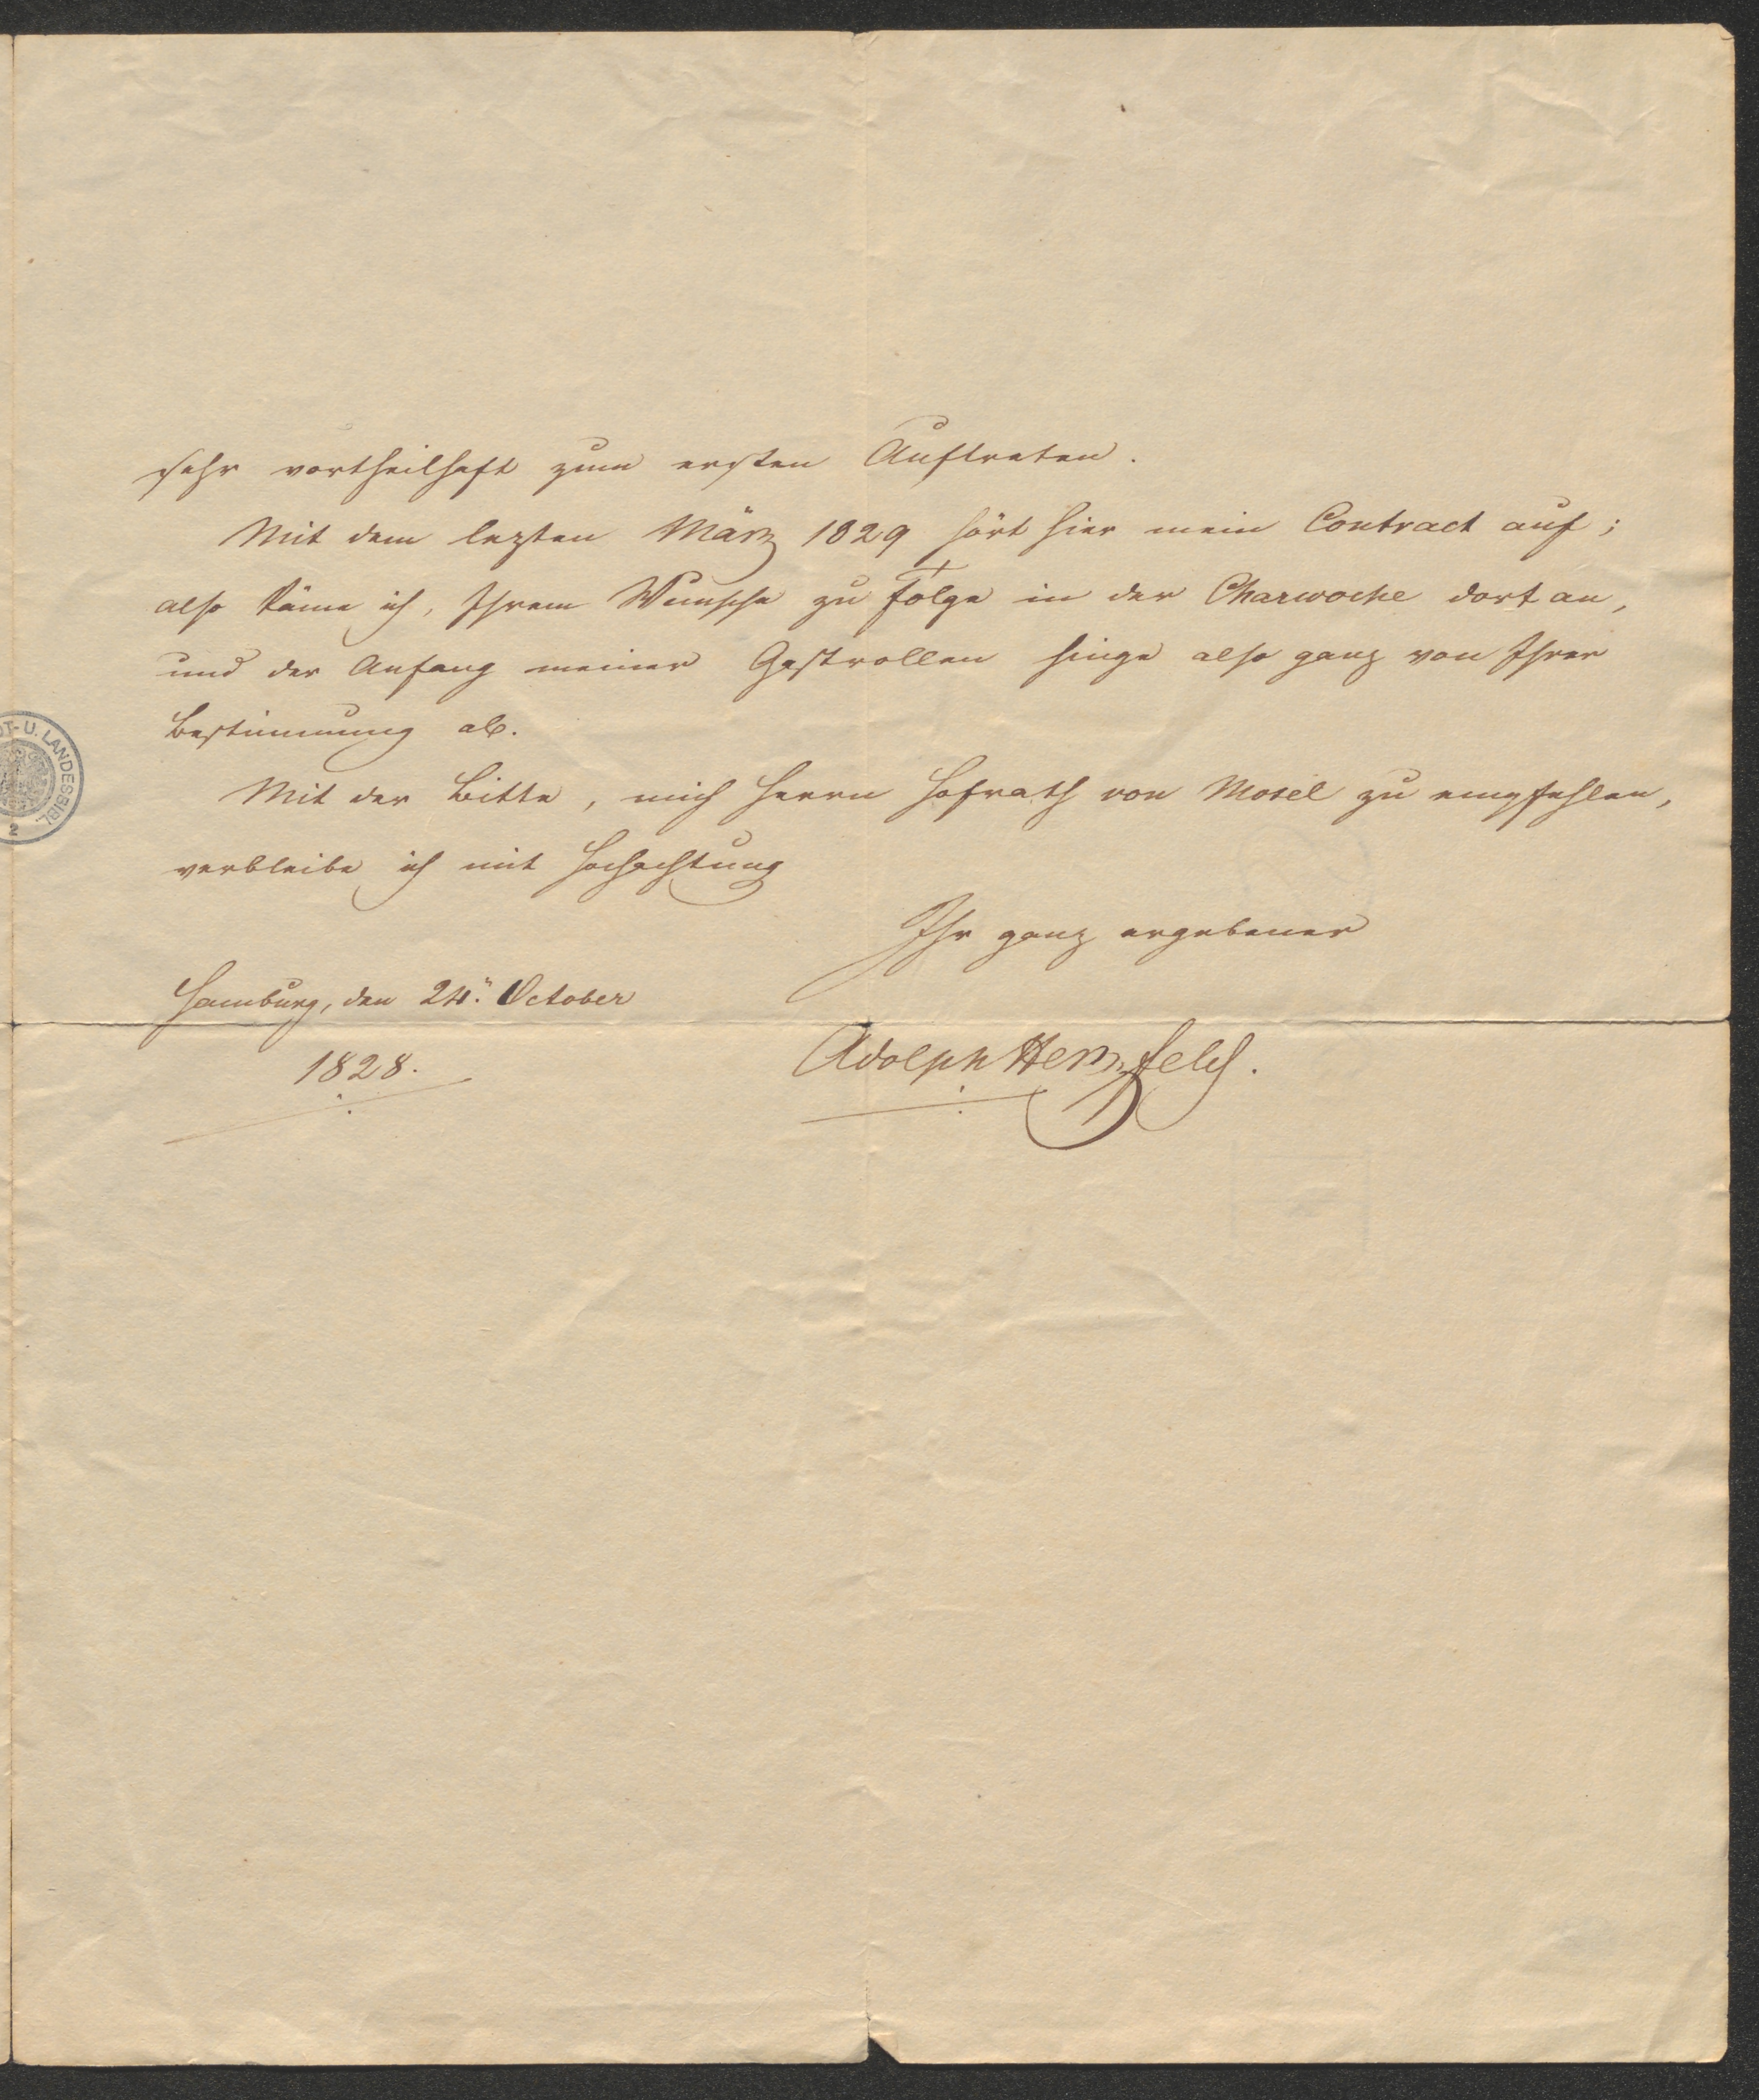 sehr vortheilhaft zum ersten Auftreten.
Mit dem lezten März 1829 hört hier mein Contract auf;
also käme ich, Ihrem Wunsche zu Folge in der Charwoche dort an,
und der Anfang meiner Gastrollen hinge also ganz von Ihrer
Bestimmung ab.
Mit der Bitte, mich Herrn Hofrath von Mosel zu empfehlen,
verbleibe ich mit Hochachtung
Ihr ganz ergebener
Hamburg, den 24. October
1828.
Adolph Herzfeld.
DT- U. LANDESBIBL.
2